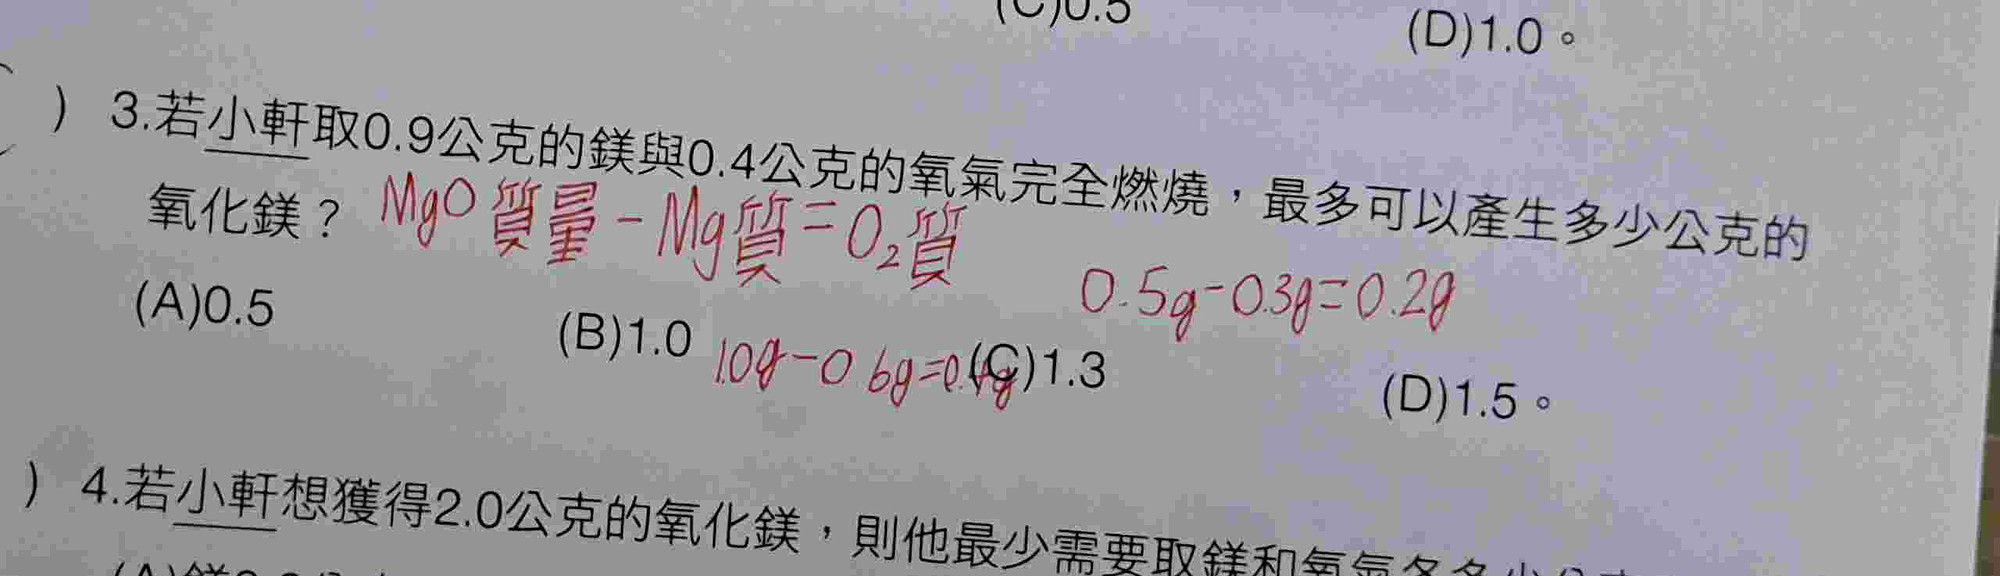 (C)0.5 (D)1.0。
) 3.若小軒取0.9公克的鎂與0.4公克的氧氣完全燃燒，最多可以產生多少公克的
氧化鎂？ MgO質量-Mg質=O₂質
0.5g-0.3g=0.2g
(A)0.5 (B)1.0 (C)1.3 (D)1.5。
1.0g-0.6g=0.4g
) 4.若小軒想獲得2.0公克的氧化鎂，則他最少需要取鎂和氧氣各多少公克